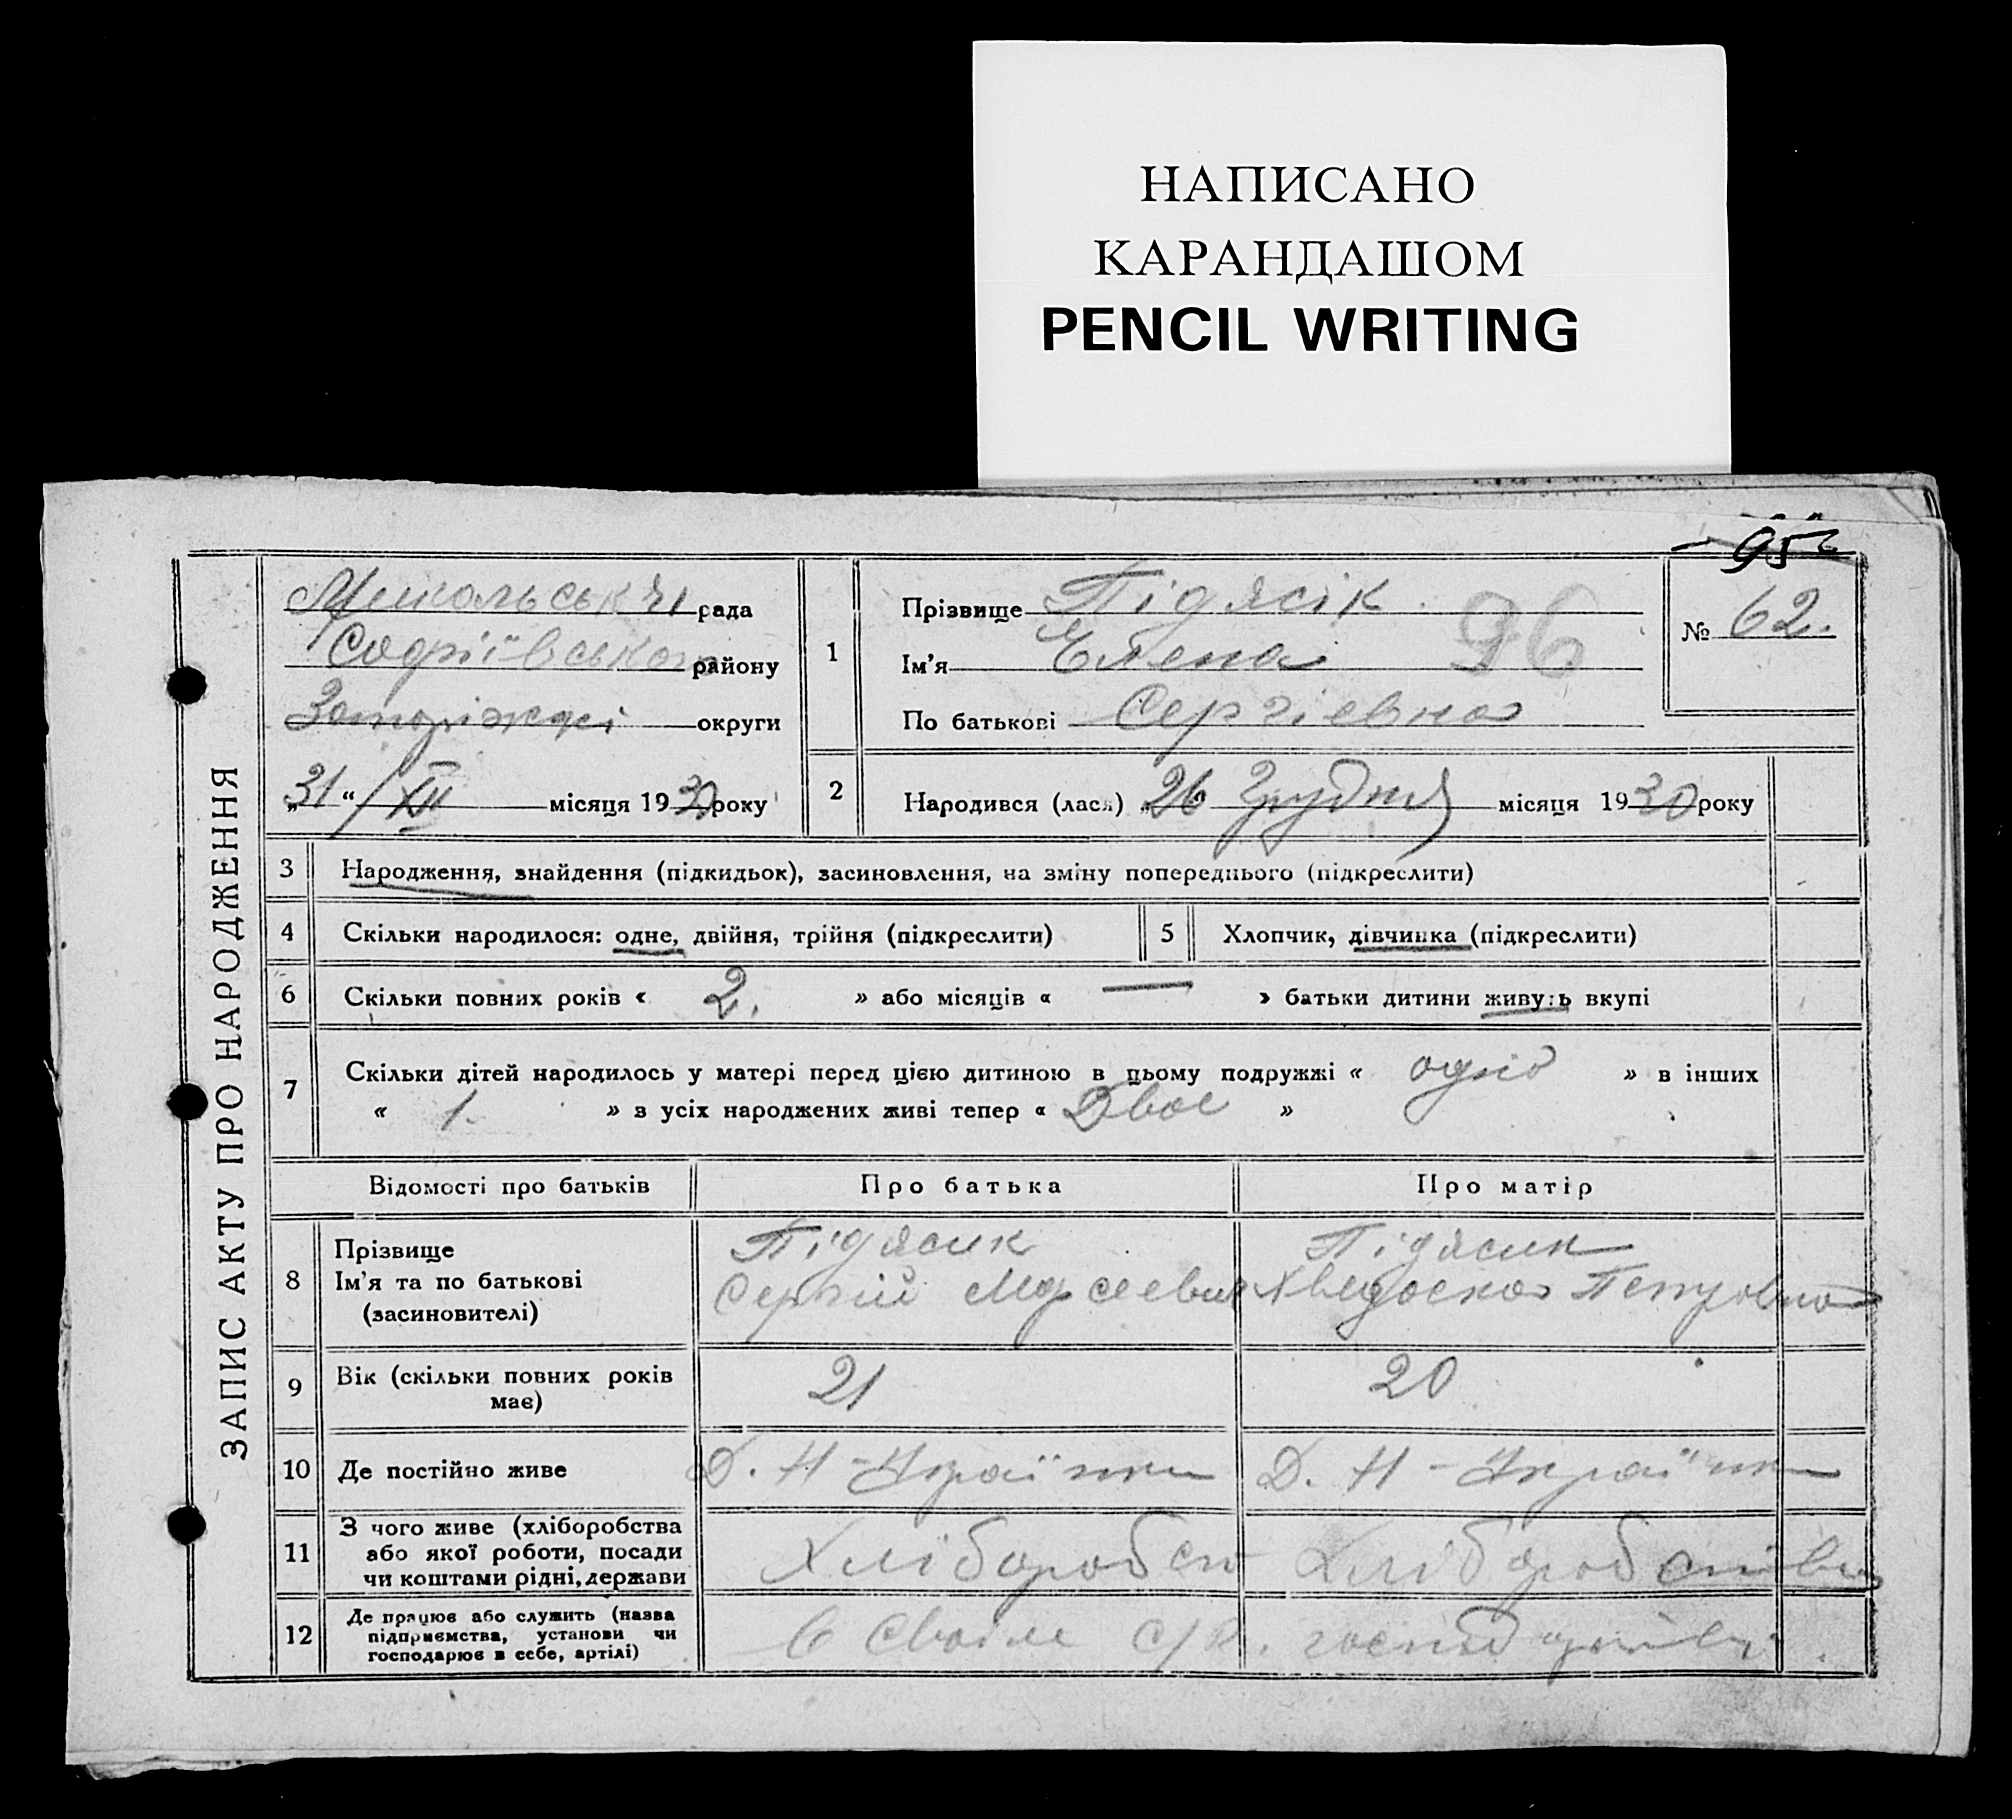 НАПИСАНО
КАРАНДАШОМ
PENCIL WRITING
95
ЗАПИС АКТУ ПРО НАРОДЖЕННЯ
рада
Софіївського району
Запоріжжі округи
„31“ /XII місяця 1930 року
1
Прізвище Підясік
96
Ім'я Елена
По батькові Сергіевна
№ 62.
2 Народився (лася) 26 Грудня місяця 1930 року
3 Народження, знайдення (підкидьок), засиновлення, на зміну попереднього (підкреслити)
4 Скільки народилося: одне, двійня, трійня (підкреслити) 5 Хлопчик, дівчинка (підкреслити)
6 Скільки повних років « 2. » або місяців « — » батьки дитини живуть вкупі
7 Скільки дітей народилось у матері перед цією дитиною в цьому подружжі « одно » в інших
« 1. » з усіх народжених живі тепер « Двое »
Відомості про батьків Про батька Про матір
8 Прізвище Підясик Підясик
Ім'я та по батькові Сергій Петровна
(засиновителі)
9 Вік (скільки повних років має) 21 20
10 Де постійно живе Д. Н-Українки Д. Н-Українки
11 З чого живе (хліборобства
або якої роботи, посади
чи коштами рідні, держави Хлібороб Хліборобство
12 Де працює або служить (назва
підприємства, установи чи
господарює в себе, артілі) В своім с/г. господарстві